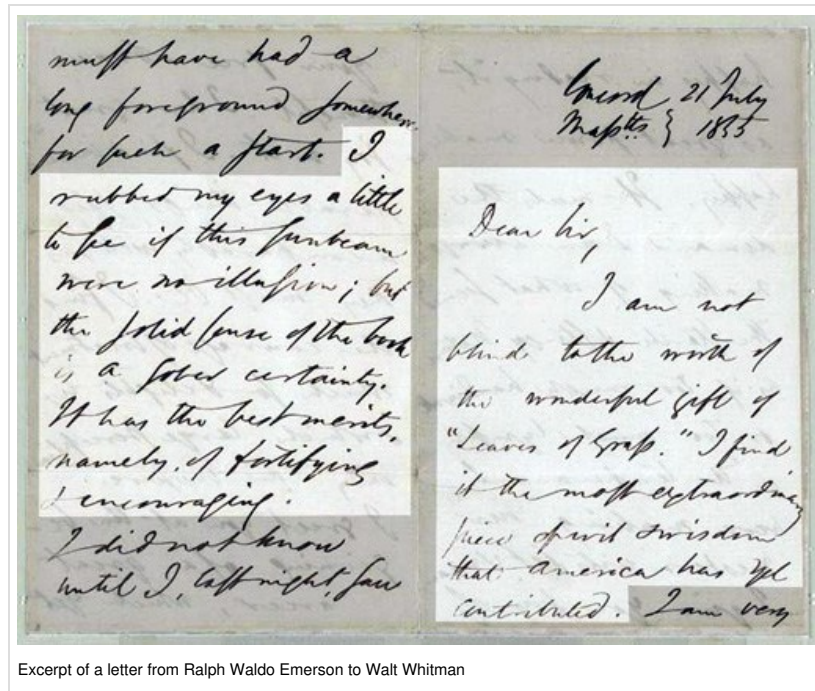 must have had a
long foreground somewhere
for such a start. I
rubbed my eyes a little
to see if this sunbeam
were no illusion; but
the solid sense of the book
is a sober certainty.
It has the best merits,
namely, of fortifying
& encouraging.
I did not know
until I, last night, saw
Concord 21 July
Masstts } 1855
Dear Sir,
I am not
blind to the worth of
the wonderful gift of
"Leaves of Grass." I find
it the most extraordinary
piece of wit & wisdom
that America has yet
contributed. I am very
Excerpt of a letter from Ralph Waldo Emerson to Walt Whitman